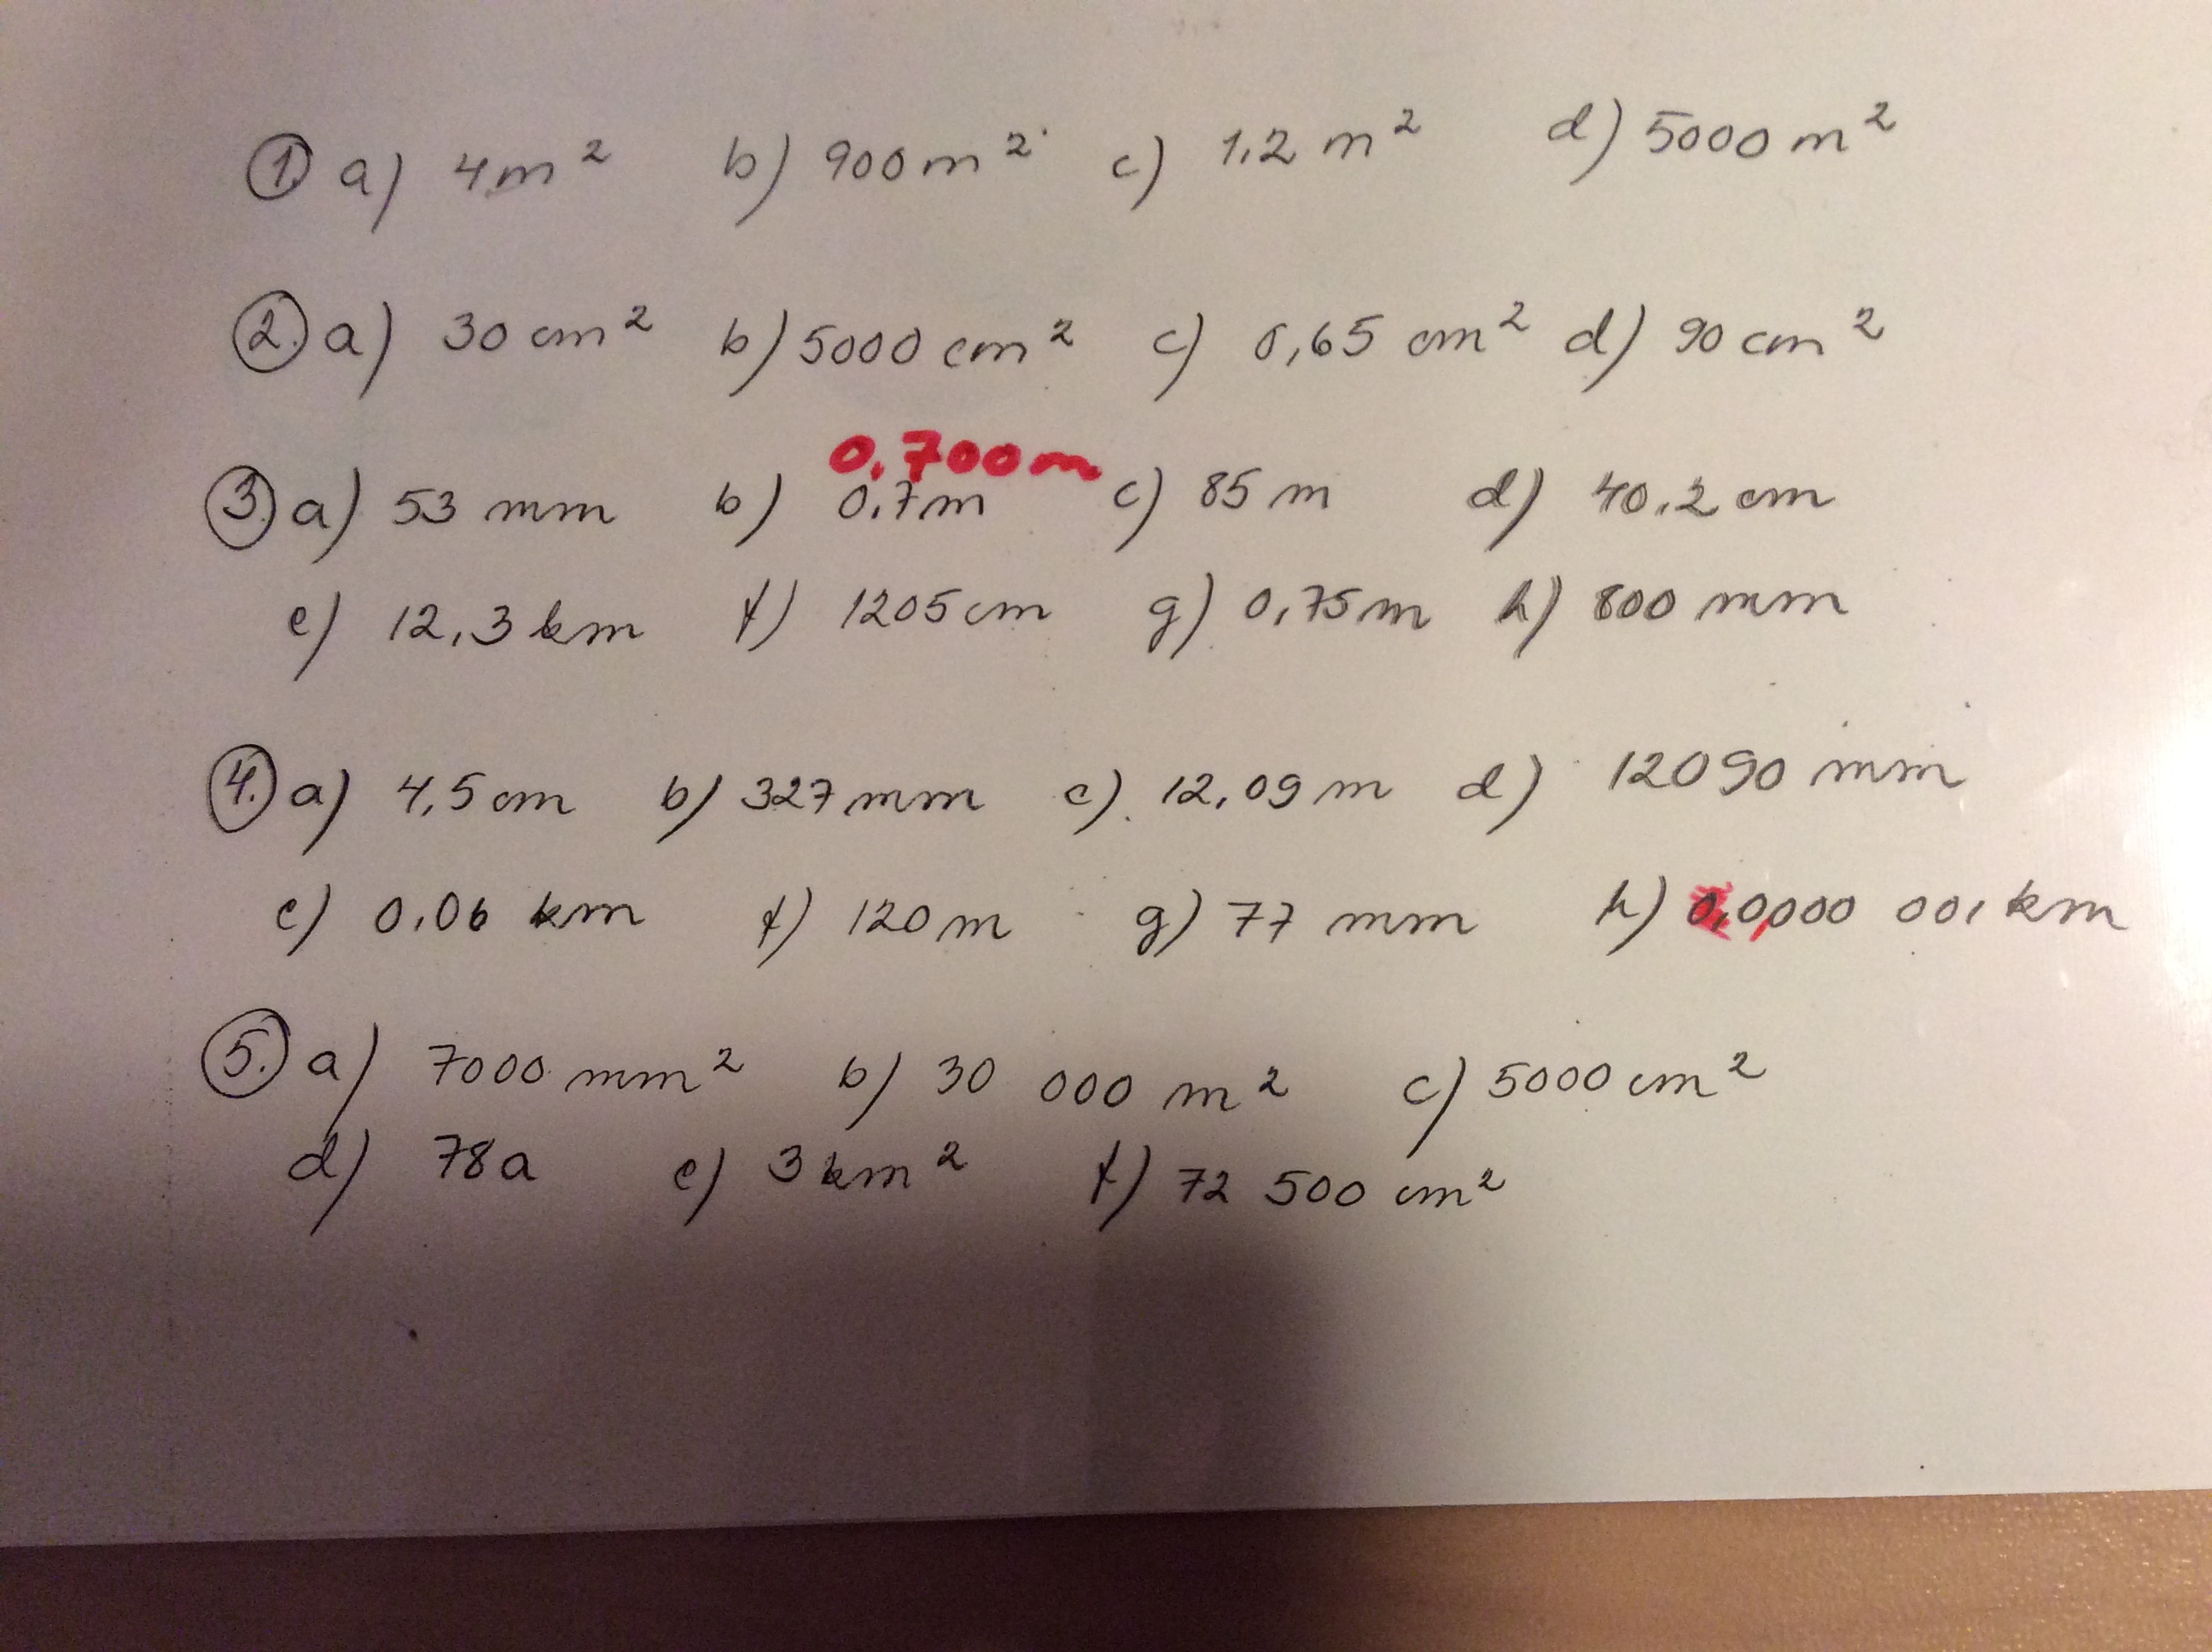 1. a) 4m² b) 900m² c) 1,2 m² d) 5000 m²
2. a) 30 cm² b) 5000 cm² c) 0,65 cm² d) 90 cm²
0,700m
3. a) 53 mm b) 0,7m c) 85 m d) 40,2 cm
e) 12,3 km f) 1205 cm g) 0,75m h) 800 mm
4. a) 4,5 cm b) 327 mm c) 12,09 m d) 12090 mm
e) 0,06 km f) 120 m g) 77 mm h) 0,000 001 km
5. a) 7000 mm² b) 30 000 m² c) 5000 cm²
d) 78a e) 3 km² f) 72 500 cm²